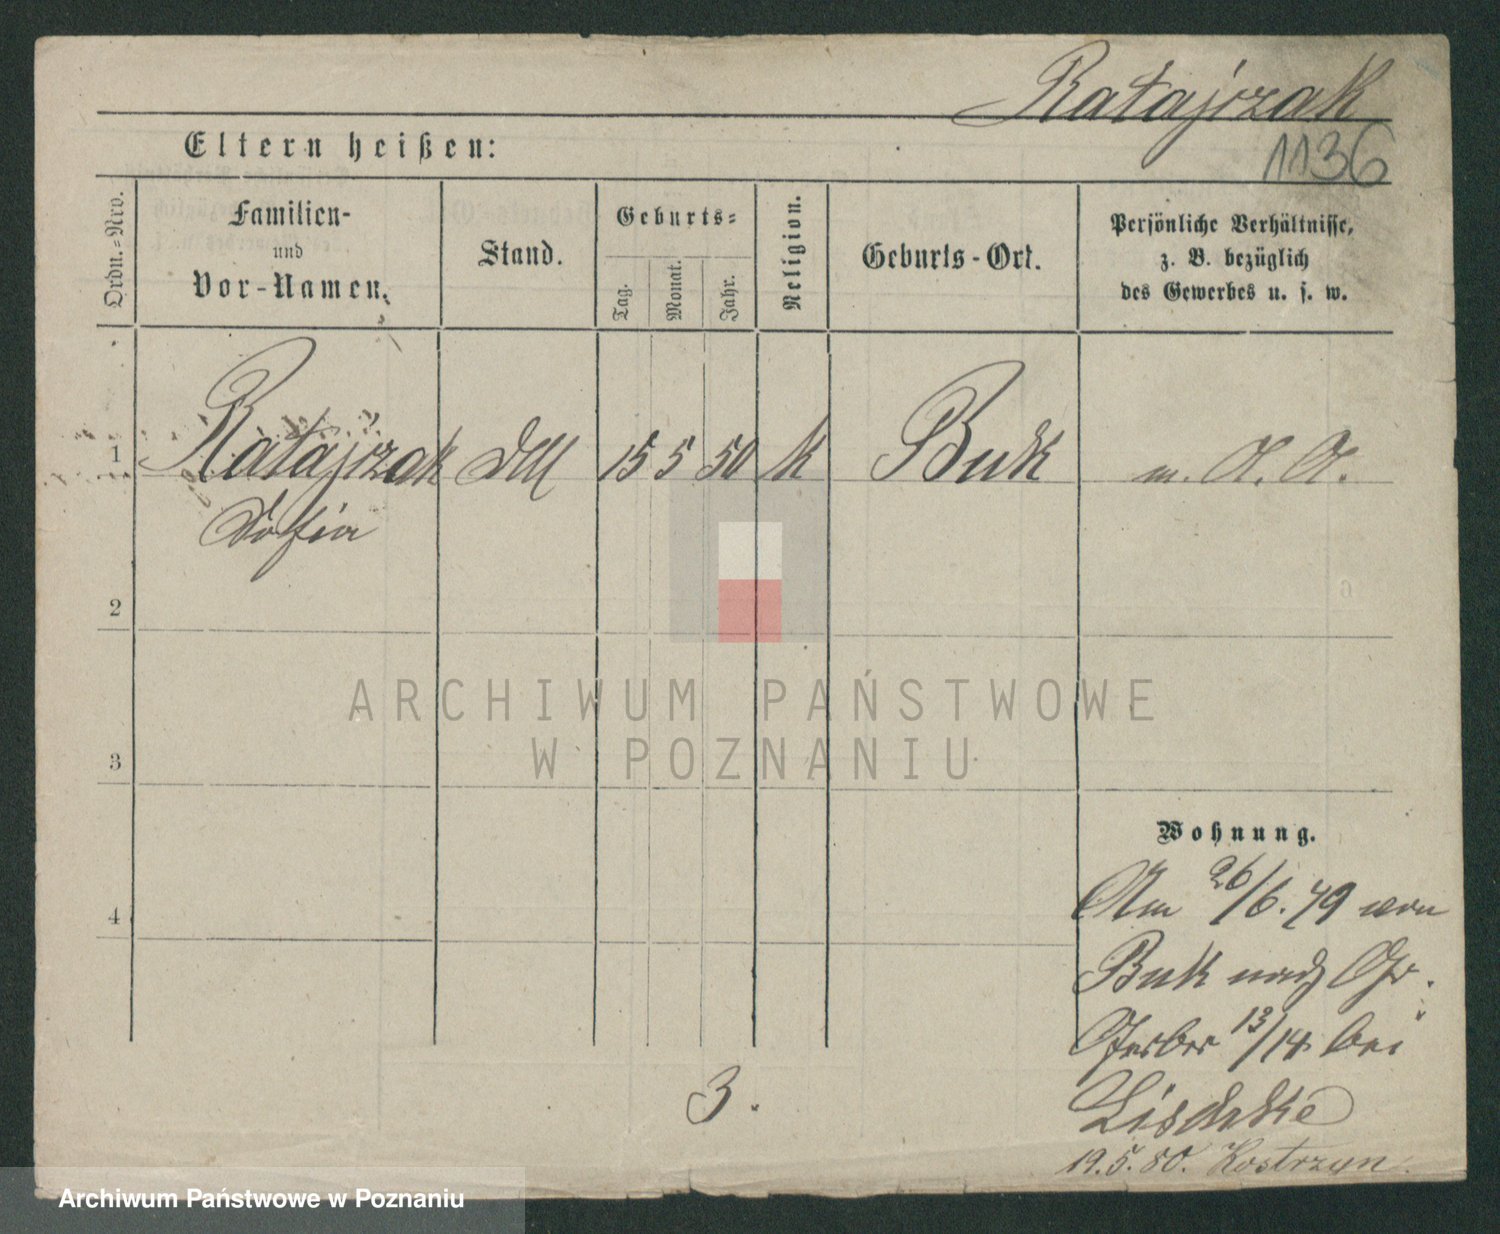 Ratajczak
1136
Eltern heißen:
Ordn.-Nro.
Familien-
und
Vor-Namen.
Stand.
Geburts-
Tag.
Monat.
Jahr.
Religion.
Geburts-Ort.
Persönliche Verhältnisse,
z. B. bezüglich
des Gewerbes u. s. w.
1 Ratajczak 15 5 50 k Buk m. A. A.
Sofia
2
3
4
ARCHIWUM PAŃSTWOWE
W POZNANIU
Wohnung.
Am 26/6. 79 von
Buk nach Gr.
Gerber 13/14 bei
3.
19.5.80. Kostrzyn.
Archiwum Państwowe w Poznaniu